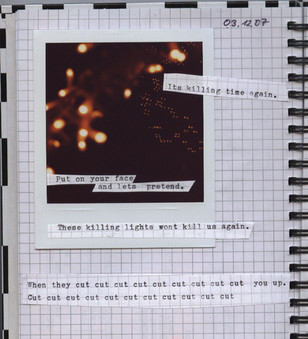 03.12.07
Its killing time again.
Put on your face
and lets pretend.
These killing lights wont kill us again.
When they cut cut cut cut cut cut cut cut cut you up.
Cut cut cut cut cut cut cut cut cut cut cut